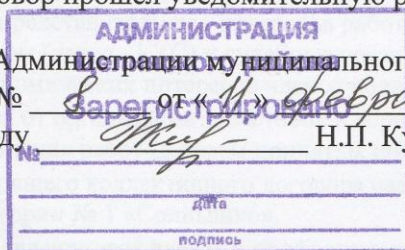 овор прошел уведомительную р
АДМИНИСТРАЦИЯ
Администрации муниципального
№ 8 от « 11 » февра
Зарегистрировано
ду Н.П. Ку
№
дата
подпись